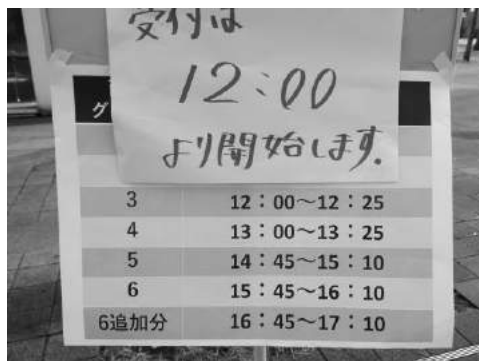 受付は
12:00
より開始します.
グ
3 12：00～12：25
4 13：00～13：25
5 14：45～15：10
6 15：45～16：10
6追加分 16：45～17：10